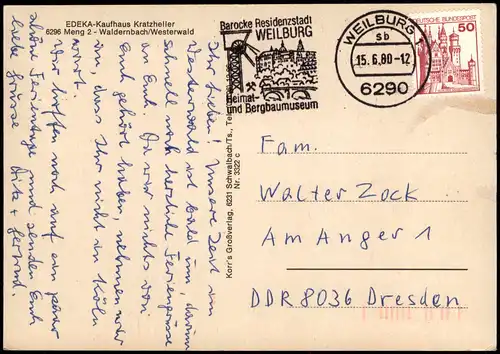 EDEKA-Kaufhaus Kratzheller
6296 Meng 2 - Waldernbach/Westerwald
Barocke Residenzstadt
WEILBURG
Heimat-
und Bergbaumuseum
WEILBURG
sb
15.6.80-12
6290
DEUTSCHE BUNDESPOST
50
Ihr Lieben! Unsere Zeit im
Westerwald ist bald um, darum
schnell noch herzliche Feriengrüsse
an Euch. Da wir nichts von
Euch gehört haben, nehmen wir
an, dass Ihr nicht in Köln
wart.
Wir hoffen noch auf ein paar
schöne Ferientage und senden Euch
liebe Grüsse
Korr's Großverlag, 6231 Schwalbach/Ts.,
Nr. 3322 c
Fam.
Walter Zock
Am Anger 1
DDR 8036 Dresden